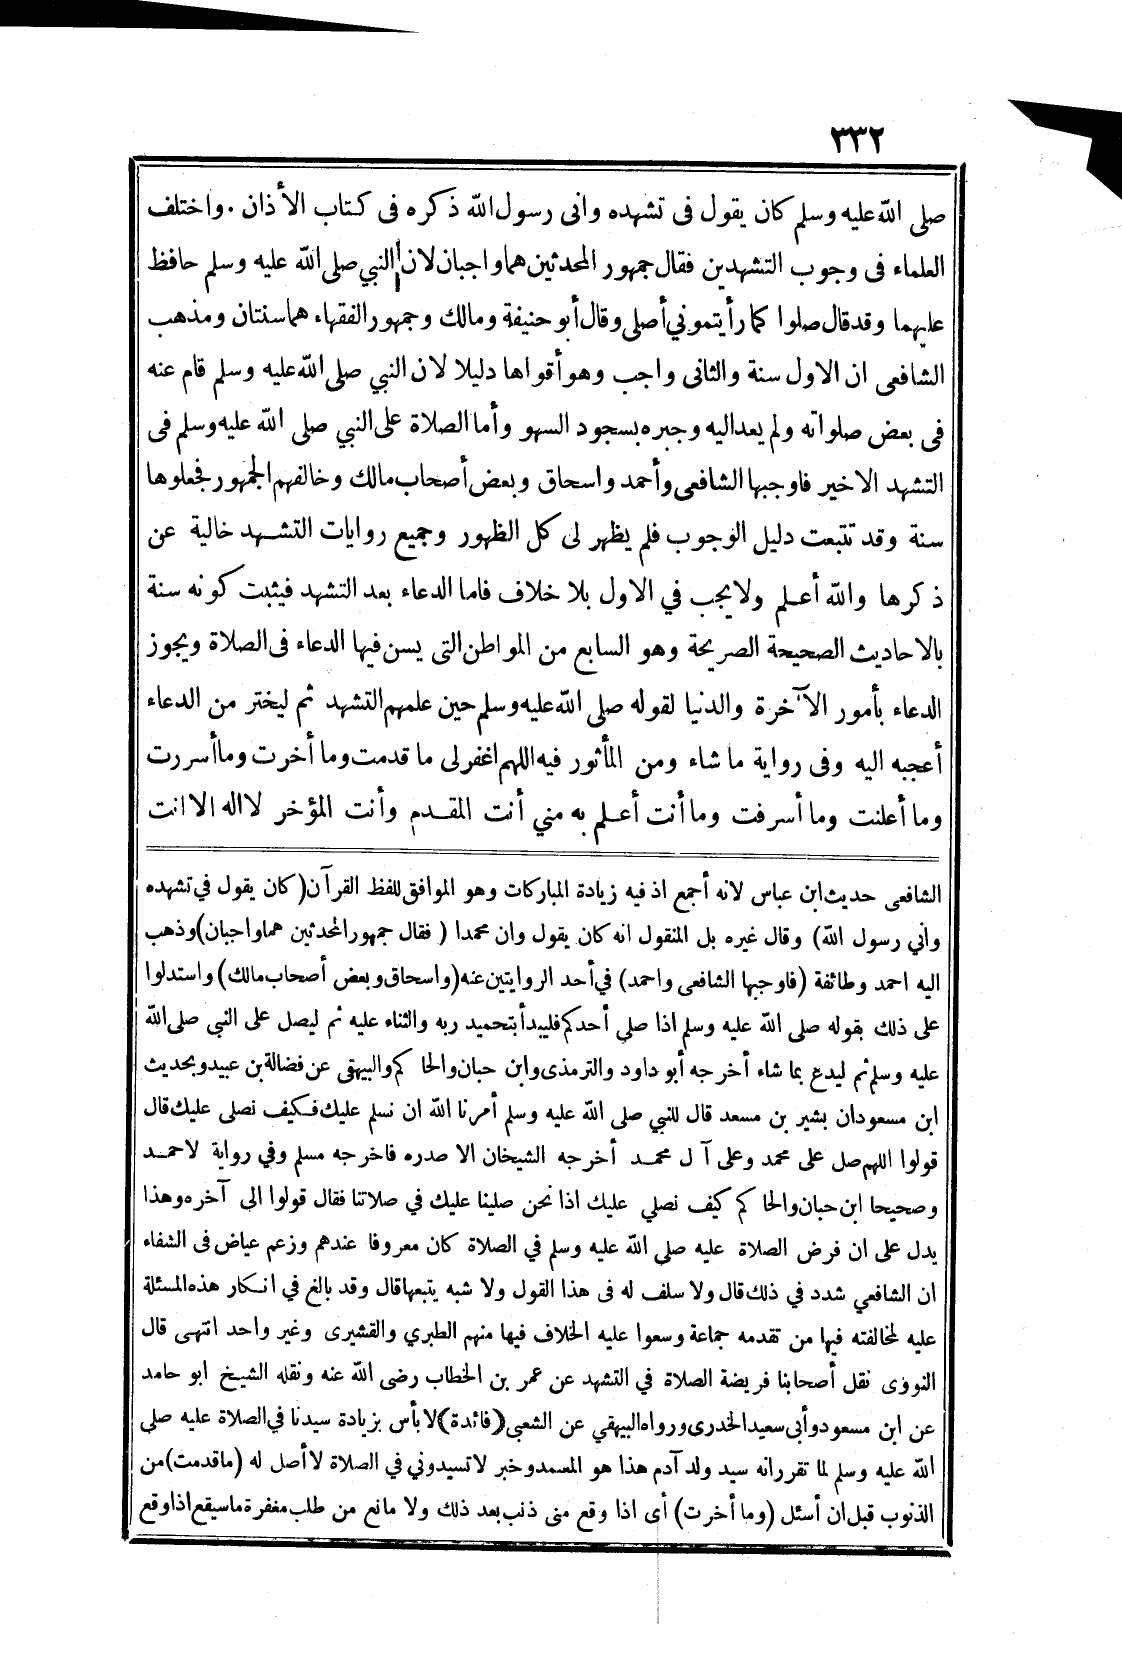 ٣٣٢
صلى الله عليه وسلم كان يقول فى تشهده وانى رسول الله ذكره فى كتاب الأذان . واختلف
العلماء فى وجوب التشهدين فقال جمهور المحدثين هما واجبان لان النبي صلى الله عليه وسلم حافظ
عليهما وقد قال صلوا كما رأيتموني أصلى وقال أبو حنيفة ومالك وجمهور الفقهاء هما سنتان ومذهب
الشافعى ان الاول سنة والثانى واجب وهو أقواها دليلا لان النبي صلى الله عليه وسلم قام عنه
فى بعض صلواته ولم يعد اليه وجبره بسجود السهو وأما الصلاة على النبي صلى الله عليه وسلم فى
التشهد الاخير فاوجبها الشافعى وأحمد واسحاق وبعض أصحاب مالك وخالفهم الجمهور فجعلوها
سنة وقد تتبعت دليل الوجوب فلم يظهر لى كل الظهور وجميع روايات التشهد خالية عن
ذكرها والله أعلم ولا يجب في الاول بلا خلاف فاما الدعاء بعد التشهد فيثبت كونه سنة
بالاحاديث الصحيحة الصريحة وهو السابع من المواطن التى يسن فيها الدعاء فى الصلاة ويجوز
الدعاء بأمور الآخرة والدنيا لقوله صلى الله عليه وسلم حين علمهم التشهد ثم ليختر من الدعاء
أعجبه اليه وفى رواية ما شاء ومن المأثور فيه اللهم اغفر لى ما قدمت وما أخرت وما أسررت
وما أعلنت وما أسرفت وما أنت أعلم به مني أنت المقدم وأنت المؤخر لا اله الا انت
الشافعى حديث ابن عباس لانه أجمع اذ فيه زيادة المباركات وهو الموافق للفظ القرآن (كان يقول في تشهده
واني رسول الله) وقال غيره بل المنقول انه كان يقول وان محمدا ( فقال جمهور المحدثين هما واجبان) وذهب
اليه احمد وطائفة (فاوجبها الشافعى واحمد) في أحد الروايتين عنه (واسحاق وبعض أصحاب مالك) واستدلوا
على ذلك بقوله صلى الله عليه وسلم اذا صلي أحدكم فليبدأ بتحميد ربه والثناء عليه ثم ليصل على النبي صلى الله
عليه وسلم ثم ليدع بما شاء أخرجه أبو داود والترمذى وابن حبان والحاكم والبيهقى عن فضالة بن عبيد وبحديث
ابن مسعود ان بشير بن مسعد قال للنبي صلى الله عليه وسلم أمرنا الله ان نسلم عليك فكيف نصلى عليك قال
قولوا اللهم صل على محمد وعلى آل محمد أخرجه الشيخان الا صدره فاخرجه مسلم وفي رواية لاحمد
وصحيحا ابن حبان والحاكم كيف نصلي عليك اذا نحن صلينا عليك في صلاتنا فقال قولوا الى آخره وهذا
يدل على ان فرض الصلاة عليه صلى الله عليه وسلم في الصلاة كان معروفا عندهم وزعم عياض فى الشفاء
ان الشافعي شدد في ذلك قال ولا سلف له فى هذا القول ولا شبه يتبعها قال وقد بالغ في انكار هذه المسئلة
عليه لمخالفته فيها من تقدمه جماعة وسعوا عليه الخلاف فيها منهم الطبري والقشيرى وغير واحد انتهى قال
النووى نقل أصحابنا فريضة الصلاة في التشهد عن عمر بن الخطاب رضى الله عنه ونقله الشيخ ابو حامد
عن ابن مسعود وأبى سعيد الخدرى ورواه البيهقي عن الشعبي (فائدة) لا بأس بزيادة سيدنا في الصلاة عليه صلى
الله عليه وسلم لما تقرر انه سيد ولد آدم هذا هو المعتمد وخبر لا تسيدوني في الصلاة لا أصل له (ما قدمت) من
الذنوب قبل ان أسئل (وما أخرت) أى اذا وقع منى ذنب بعد ذلك ولا مانع من طلب مغفرة ما سيقع اذا وقع